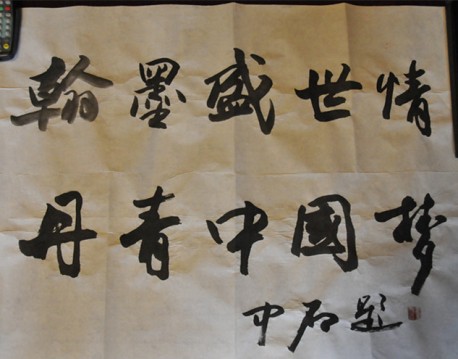 翰墨盛世情
丹青中國梦
中石题